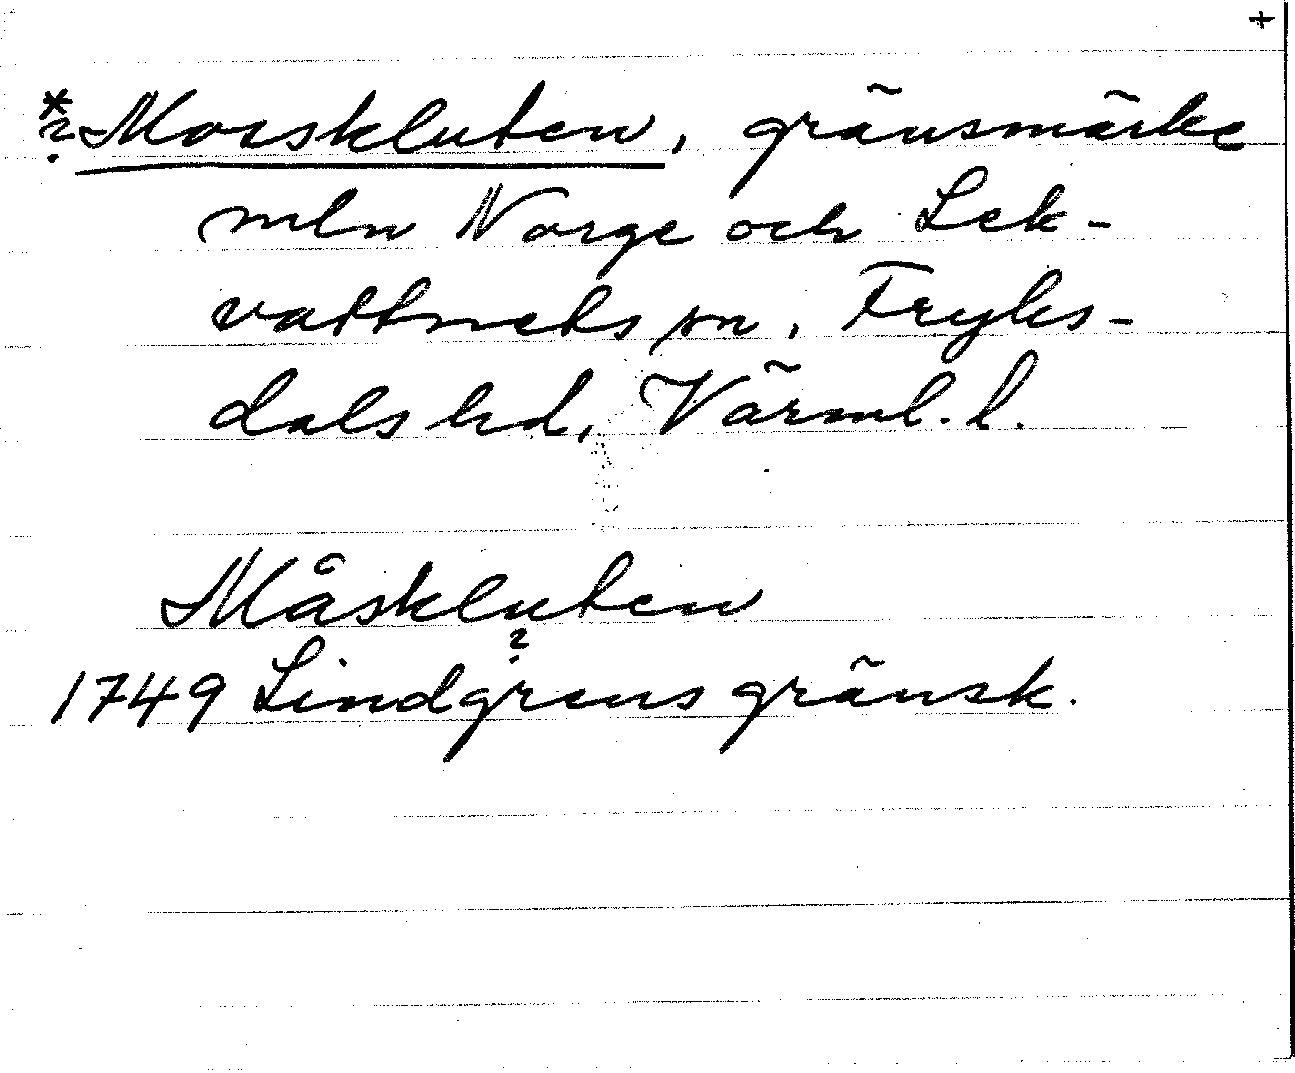 +
*? Morskluten, gränsmärke
mln Norge och Lek-
vattnets sn, Fryks-
dals hd, Värml. l.
Måskluten
?
1749 Lindgrens gränsk.